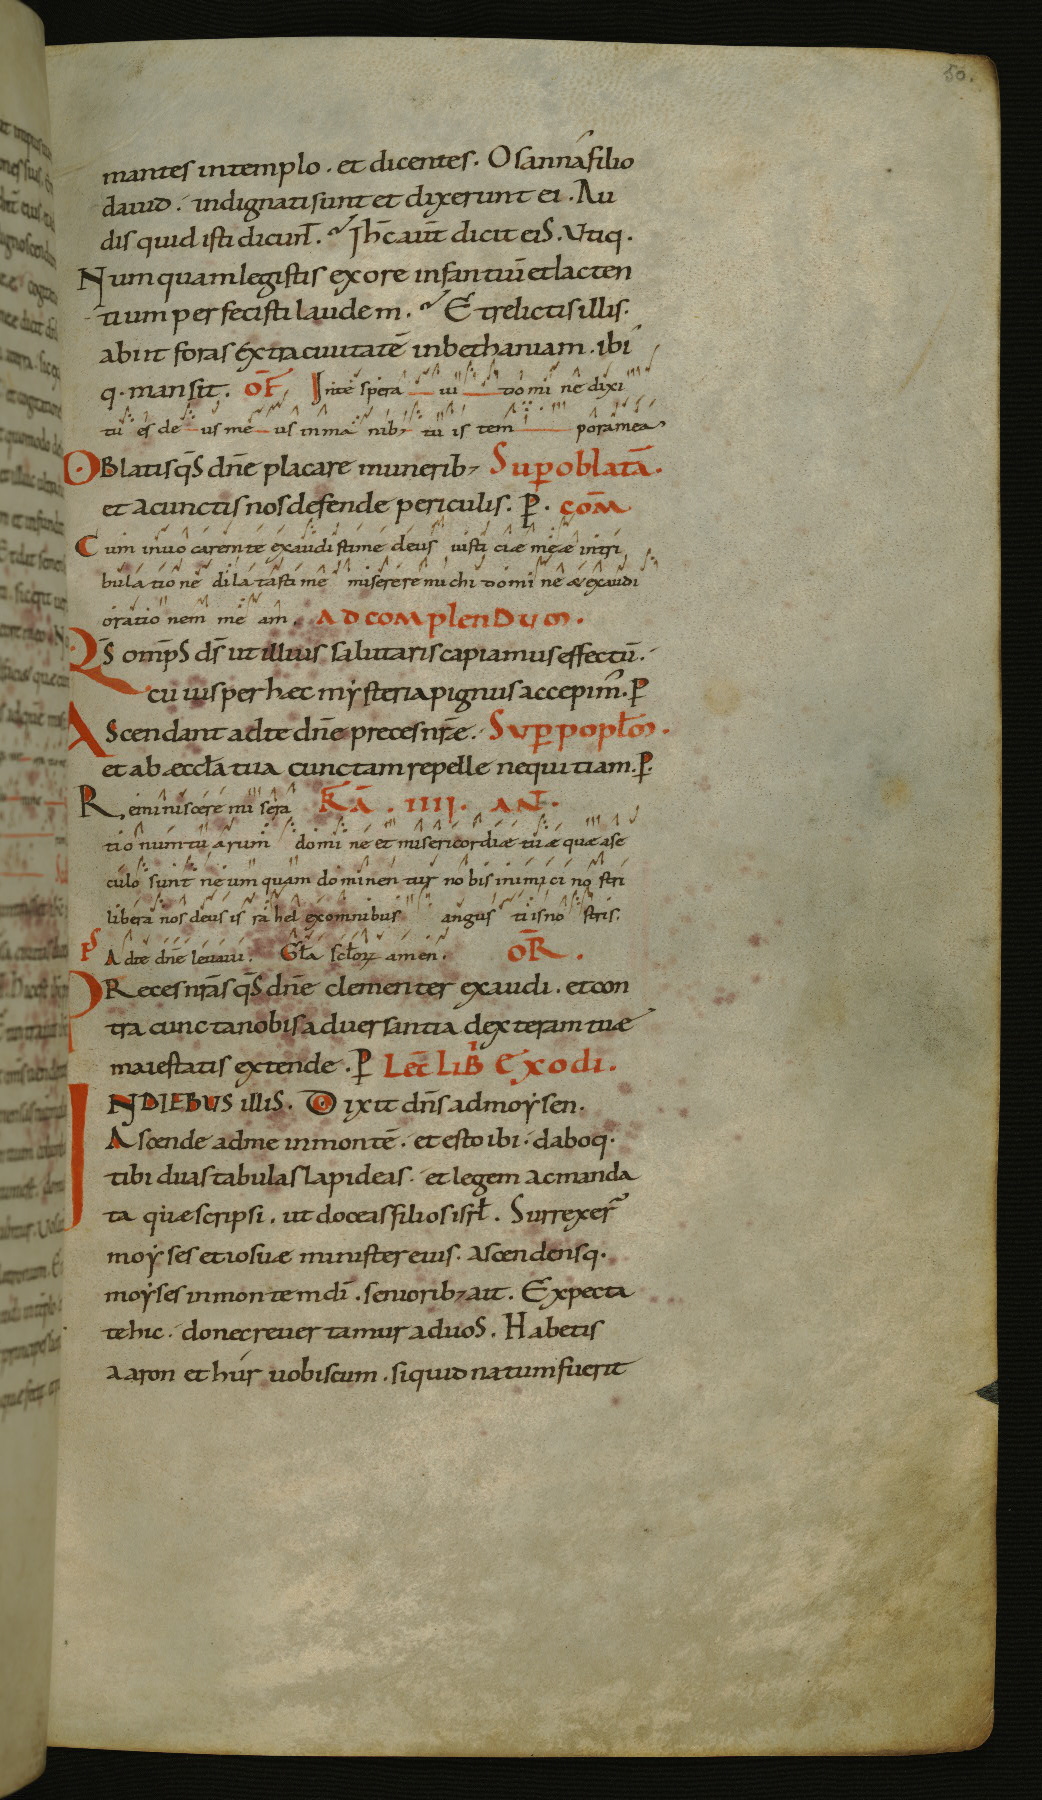 50.
mantes in templo . et dicentes . O sanna filio
dauid . indignati sunt et dixerunt ei . Au
dis quid isti dicunt̄ . Ih̄c aut̄ dicit eis . Utiq .
Numquam legistis ex ore infantiū et lacten
tium perfecisti laudem . Et relictis illis .
abiit foras extra ciuitatē in bethaniam . ibi
q . mansit . OF̄ In te spera ui domine dixi
tu es deus meus in manib; tuis tem pora mea
Oblatis qs̄ dn̄e placare munerib; Sup oblatā .
et a cunctis nos defende periculis . P . cōm
Cum inuocarem te exaudisti me deus iusticiæ meæ in tri
bulatione dilatasti me miserere michi domine & exaudi
orationem meam . Ad complendum .
Qs̄ omps̄ ds̄ ut illius salutaris capiamus effectū .
cuius per hec mysteria pignus accepim̄ . P
Ascendant ad te dn̄e preces nr̄e . Sup popl̄om .
et ab æccl̄a tua cunctam repelle nequitiam . P .
Reminiscere misera F̄A . IIII . AN̄ .
tionum tuarum domine et misericordiæ tuæ quæ a se
culo sunt ne umquam dominentur nobis inimici nostri
libera nos deus israhel ex omnibus angustiis nostris .
Ps Ad te dn̄e leuaui . Gl̄a scl̄orum amen . OR̄ .
Preces nr̄as qs̄ dn̄e clementer exaudi . et con
tra cuncta nobis aduersantia dexteram tuæ
maiestatis extende . P Lec̄ Lib̄ Exodi .
IN DIEBUS illis . Dixit dn̄s ad moẏsen .
Ascende ad me in montē . et esto ibi . daboq .
tibi duas tabulas lapideas . et legem ac manda
ta quæ scripsi . ut doceas filios isrł . Surrexer̄
moẏses et iosuæ minister eius . ascendensq .
moẏses in montem dī . seniorib; ait . Expecta
te hic . donec reuertamur ad uos . Habetis
aaron et hur uobiscum . si quid natum fuerit